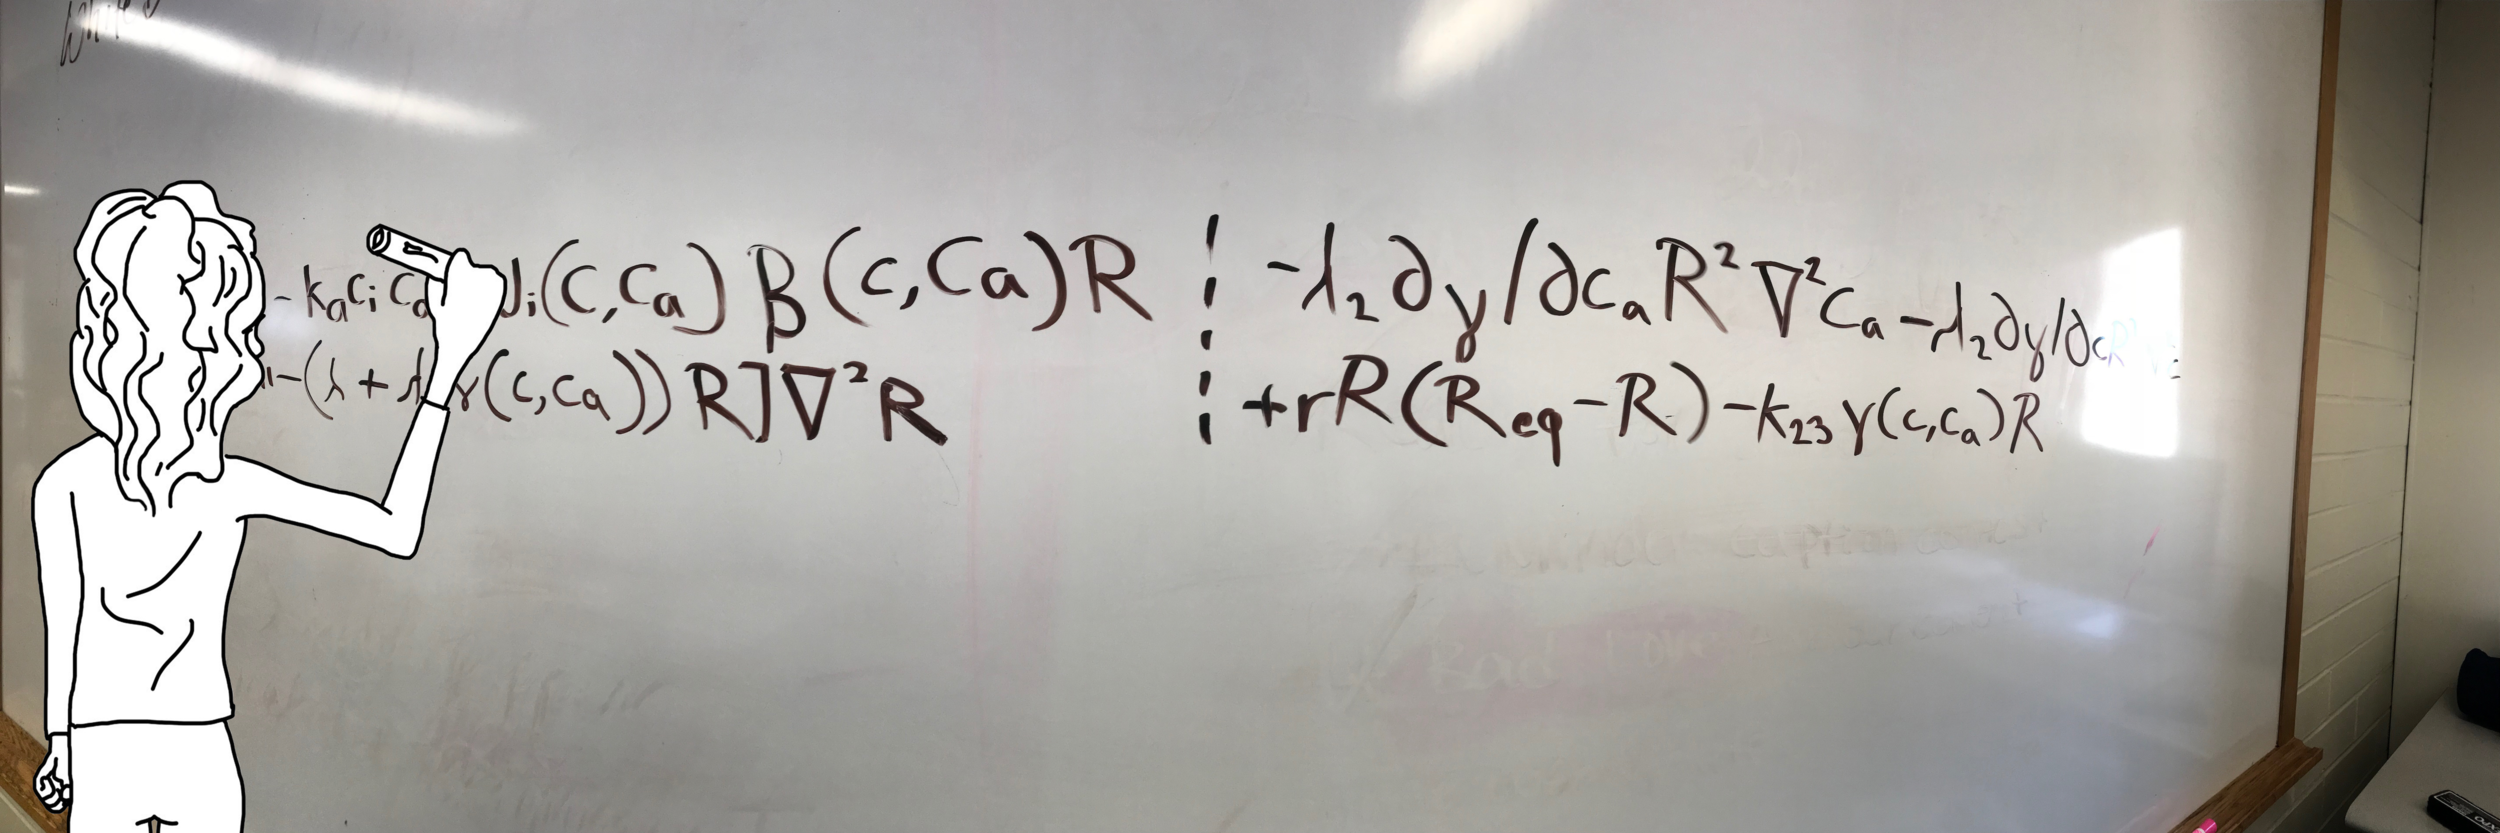 -kₐcᵢcₐ Jᵢ(c,cₐ)β(c,cₐ)R ¦ -λ₂∂γ/∂cₐR²∇²cₐ-λ₂∂γ/∂cR²∇²
-(λ+λ γ(c,cₐ))R]∇²R ¦ +rR(R_eq-R)-k₂₃γ(c,cₐ)R